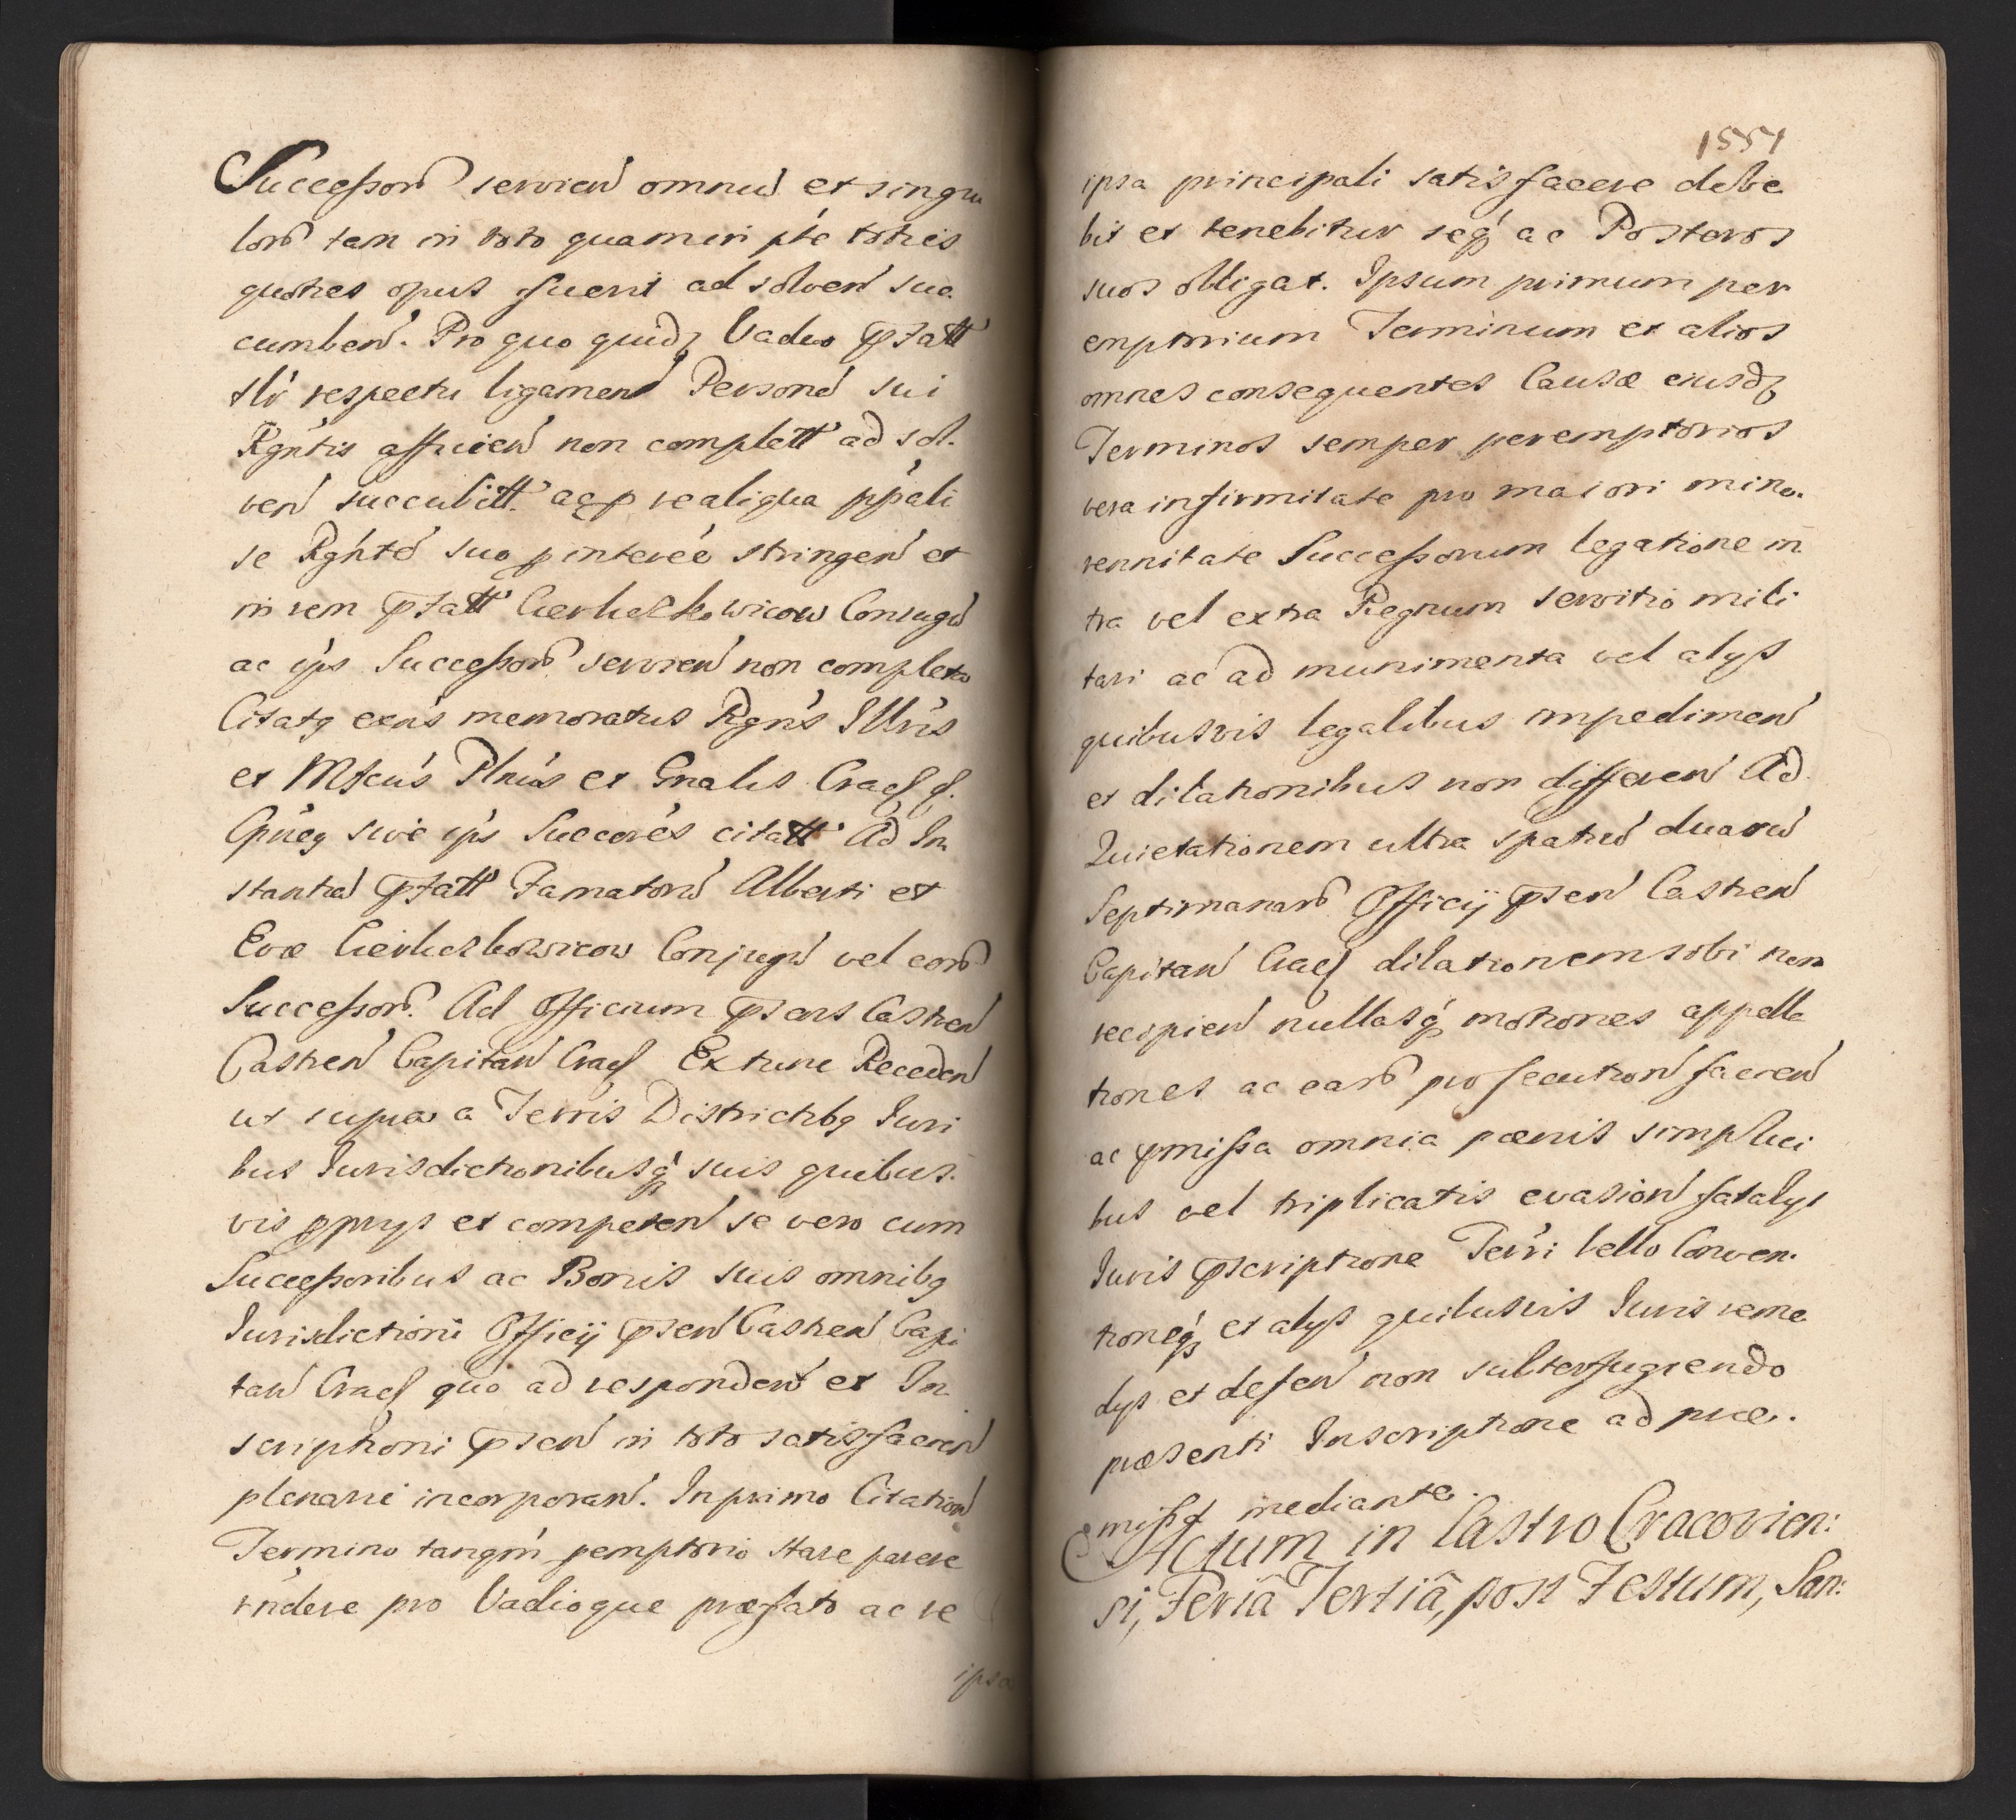 Successorũ servien̄ omniũ et singu
lorũ tam in toto quam in pte toties
quoties opus fuerit ad solven̄ suc
cumben̄. Pro quo quidz Vadio p̄fatt
sti respectu ligamen̄ Personã sui
Rgn̄tis afficien̄ non complett ad sol.
ven̄ succubitt. acp re aliqua pp̄ali
se Rgn̄te suo p interēe stringen̄ et
in rem p̄fatt Conjugũ
ac ip̄s Successorũ servien̄ non completa
Citatq exn̄s memoratus Rgn̄s Illr̄is
et Mfcūs Pln̄us et Gnalis Cracf
sive ip̄s Succorēs citatt Ad In
stantiã p̄fatt Famatorũ Alberti et
Evæ Conjugũ vel eorũ
Successorũ. Ad Officium p̄sens Castren̄
Castren̄ Capitan̄ Cracf Extunc Receden̄
ut supra a Terris Districtibq Juri
bus Jurisdictionibusq suis quibus.
vis pprys et competen̄ se vero cum
Successoribus ac Bonis suis omnibq
Jurisdictioni Officij p̄sen̄ Castren̄ Capi
tan̄ Cracf quo ad responden̄ et In
scriptioni p̄sen̄ in toto satisfacien̄
plenarie incorporan̄. In primo Citation̄
Termino tanqm̄ pemptorio stare parere
rn̄dere pro Vadioque præfato ac re
ipsa
1551
ipsa principali satisfacere debe
bit et tenebitur seq ac Posteros
suos obligat. Ipsum primum per
emptorium Terminum et alios
omnes consequentes Causæ eiusdz
Terminos semper peremptorios
vera infirmitate pro maiori mino.
rennitate Successorum legatione in
tra vel extra Regnum servitio mili
tari ac ad munimenta vel alys
quibusvis legalibus impedimen̄
et dilationibus non differen̄ Ad
Quietationem ultra spatiũ duarũ
Septimanarũ Officij p̄sen̄ Castren̄
Capitan̄ Cracf dilationem sibi non
recipien̄ nullasq motiones appella
tiones ac earũ prosecution̄ facien̄
ac p̄missa omnia pænis simplici
bus vel triplicatis evasion̄ fatalys
Juris p̄scriptione Terri bello Conven.
tioneq et alys quibusvis Juris reme
dys et defen̄ non subterfugiendo
præsenti Inscriptione ad præ.
missa mediante.
Actum in Castro Cracovien:
si, Feriâ Tertiâ, post Festum, San: